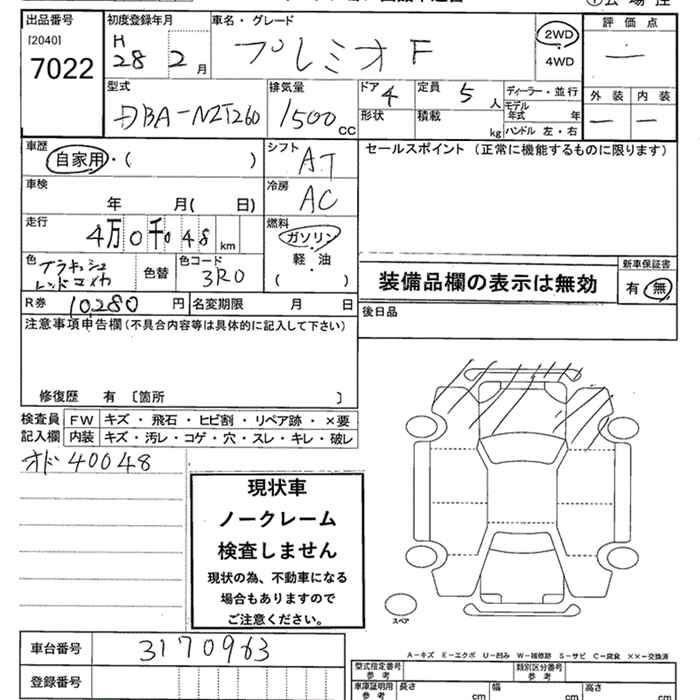 出品番号 初度登録年月 車名・グレード 評価点
[2040] H 28 2月 プレミオF 2WD 4WD
7022
型式 排気量 ドア 4 定員 5人 ディーラー・並行 外装 内装
DBA-NZT260 1500 CC 形状 積載 kg モデル年式 年
ハンドル 左・右
車歴 自家用・( ) シフト AT セールスポイント(正常に機能するものに限ります)
車検 年 月( 日) 冷房 AC
走行 4万0千048km 燃料 ガソリン・軽油・( )
色 ブラキッシュレッドマイカ 色替 色コード 3R0 装備品欄の表示は無効 新車保証書 有・無
R券 10,280円 名変期限 月 日 後日品
注意事項申告欄(不具合内容等は具体的に記入して下さい)
修復歴 有 〔箇所 〕
検査員記入欄 FW キズ・飛石・ヒビ割・リペア跡・×要
内装 キズ・汚レ・コゲ・穴・スレ・キレ・破レ
オド 40048
現状車
ノークレーム
検査しません
現状の為、不動車になる
場合もありますので
ご注意ください。
スペア
A-キズ E-エクボ U-凹み W-補修跡 S-サビ C-腐食 ××-交換済
車台番号 3170963 型式指定番号 参考 類別区分番号 参考
登録番号 車庫証明用 参考 長さ cm 幅 cm 高さ cm